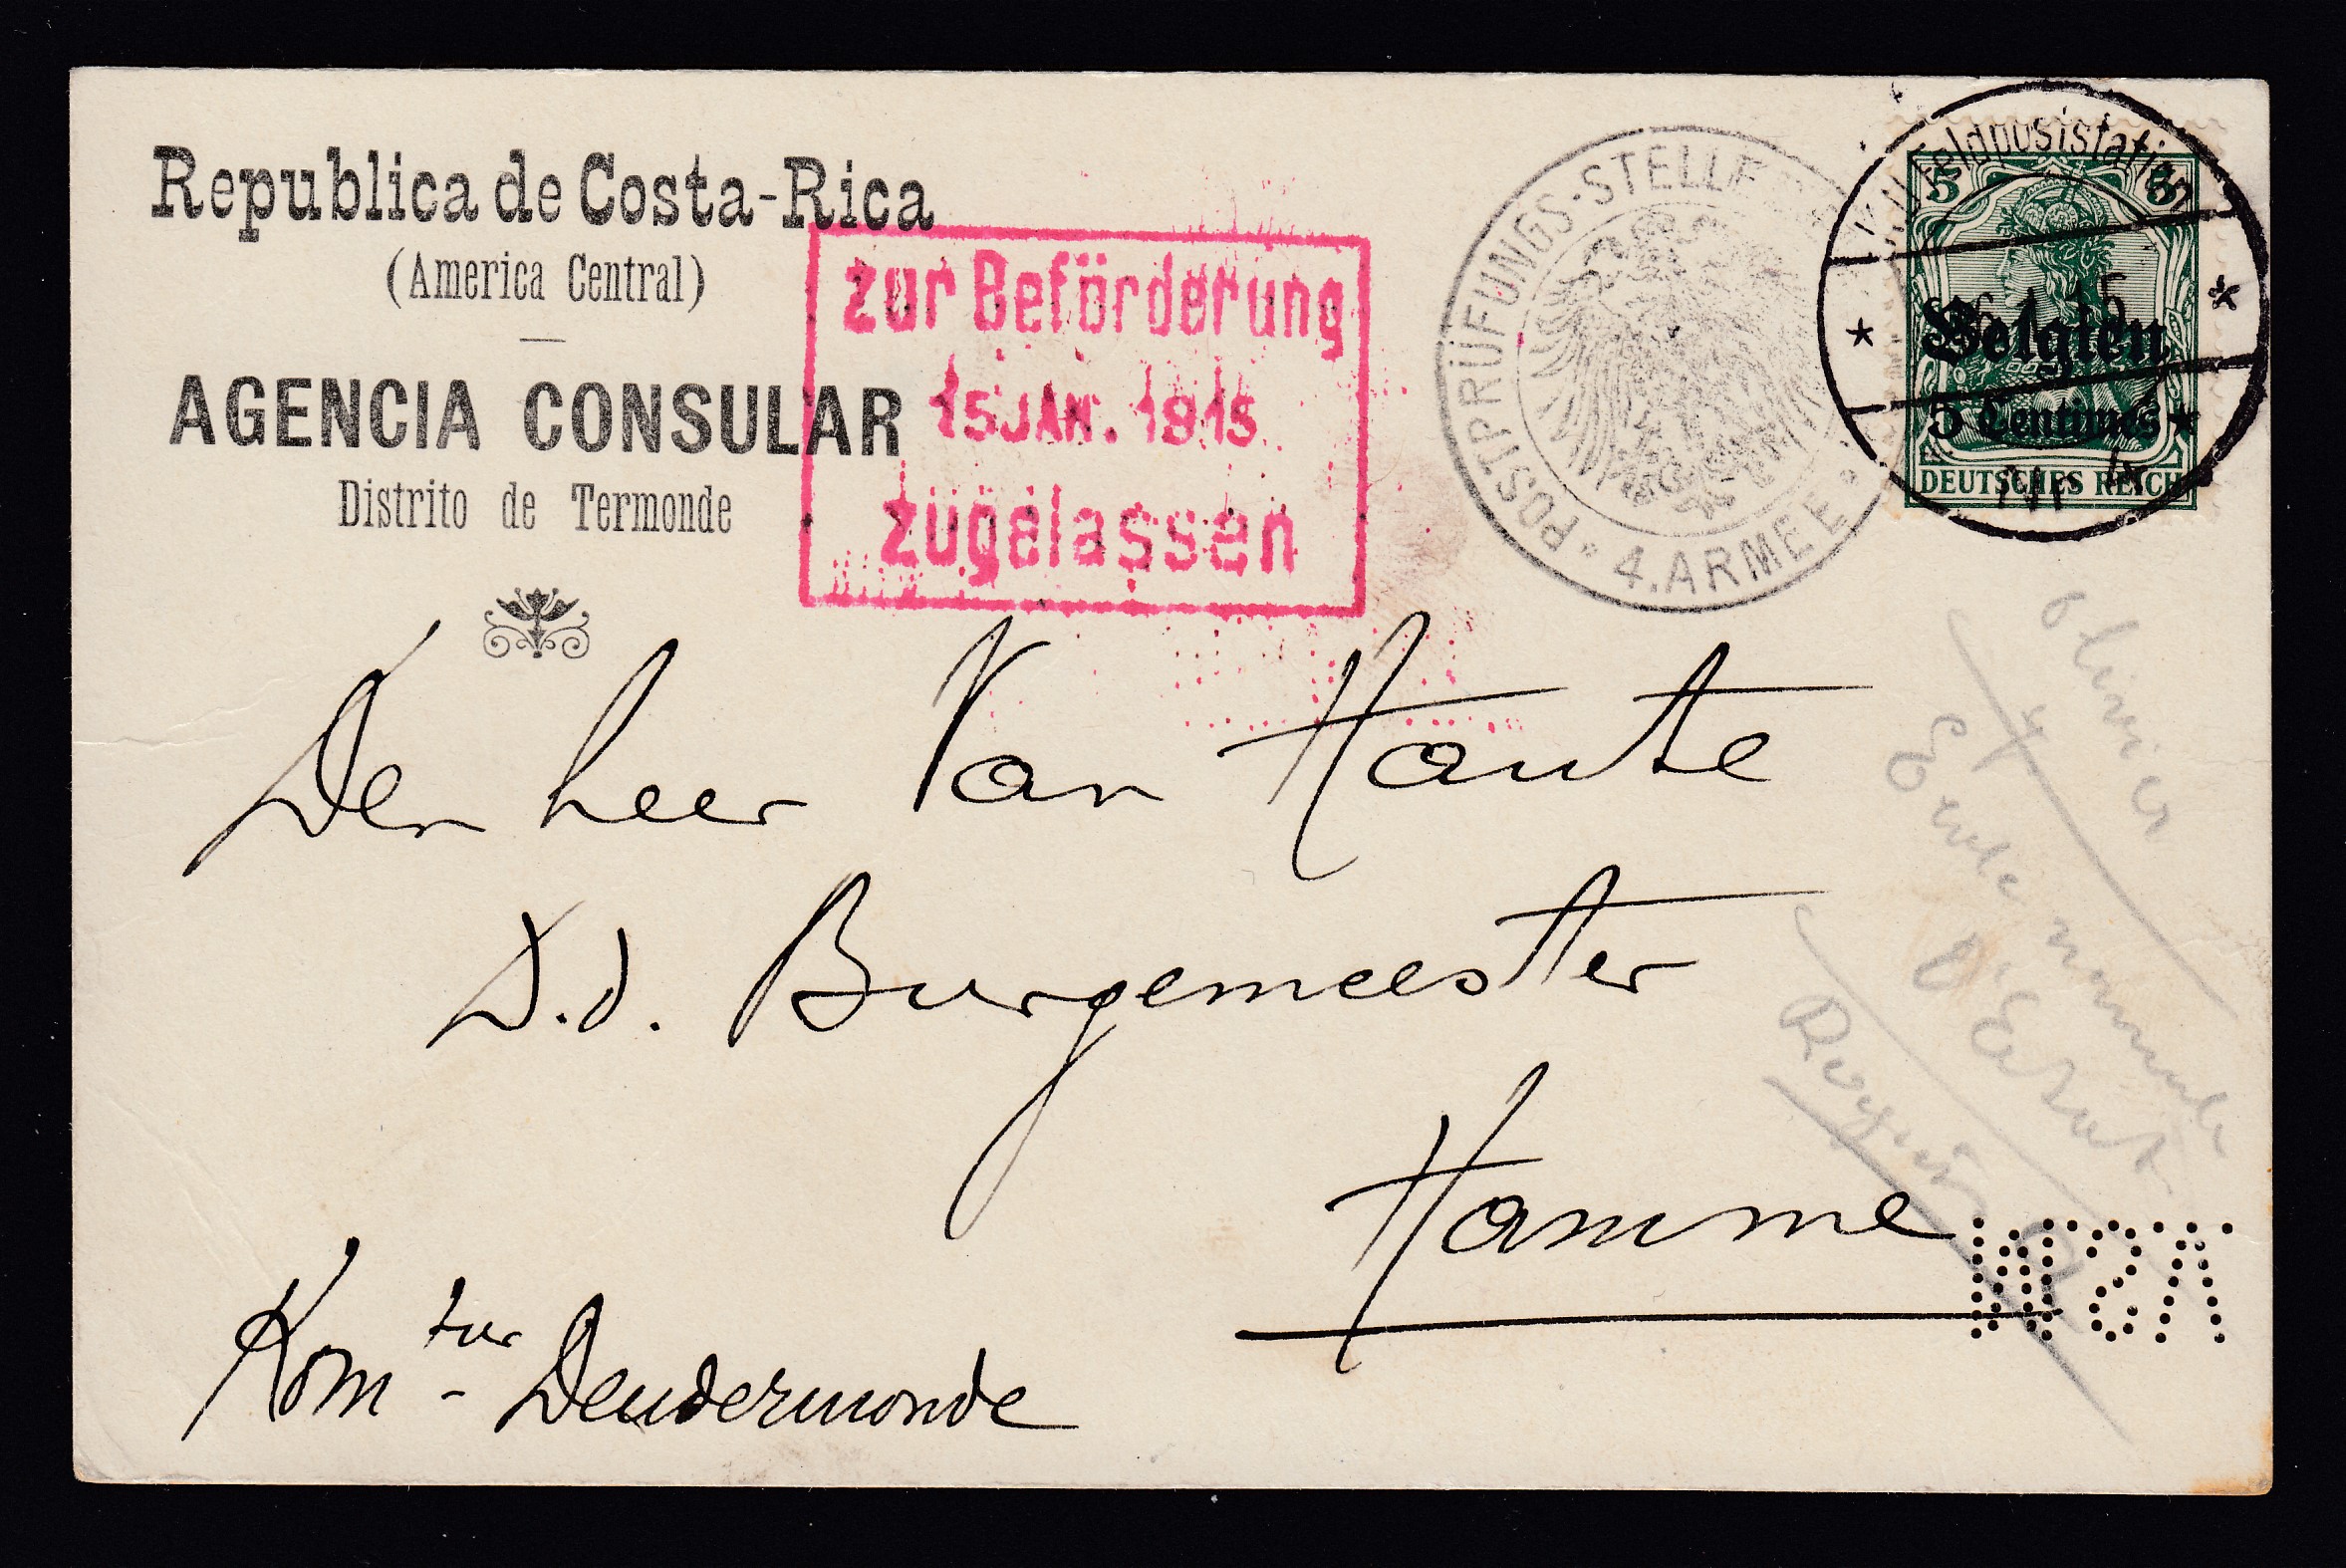 Republica de Costa-Rica
(America Central)
AGENCIA CONSULAR
Distrito de Termonde
zur Beförderung
15 JAN. 1915
zugelassen
POSTPRÜFUNGS-STELLE
4. ARMEE
Feldpoststation
1.15
5 5
Belgien
5 Centimes
DEUTSCHES REICH
Den heer Van Haute
D.d. Burgemeester
Hamme
Kom tur - Dendermonde
olivier